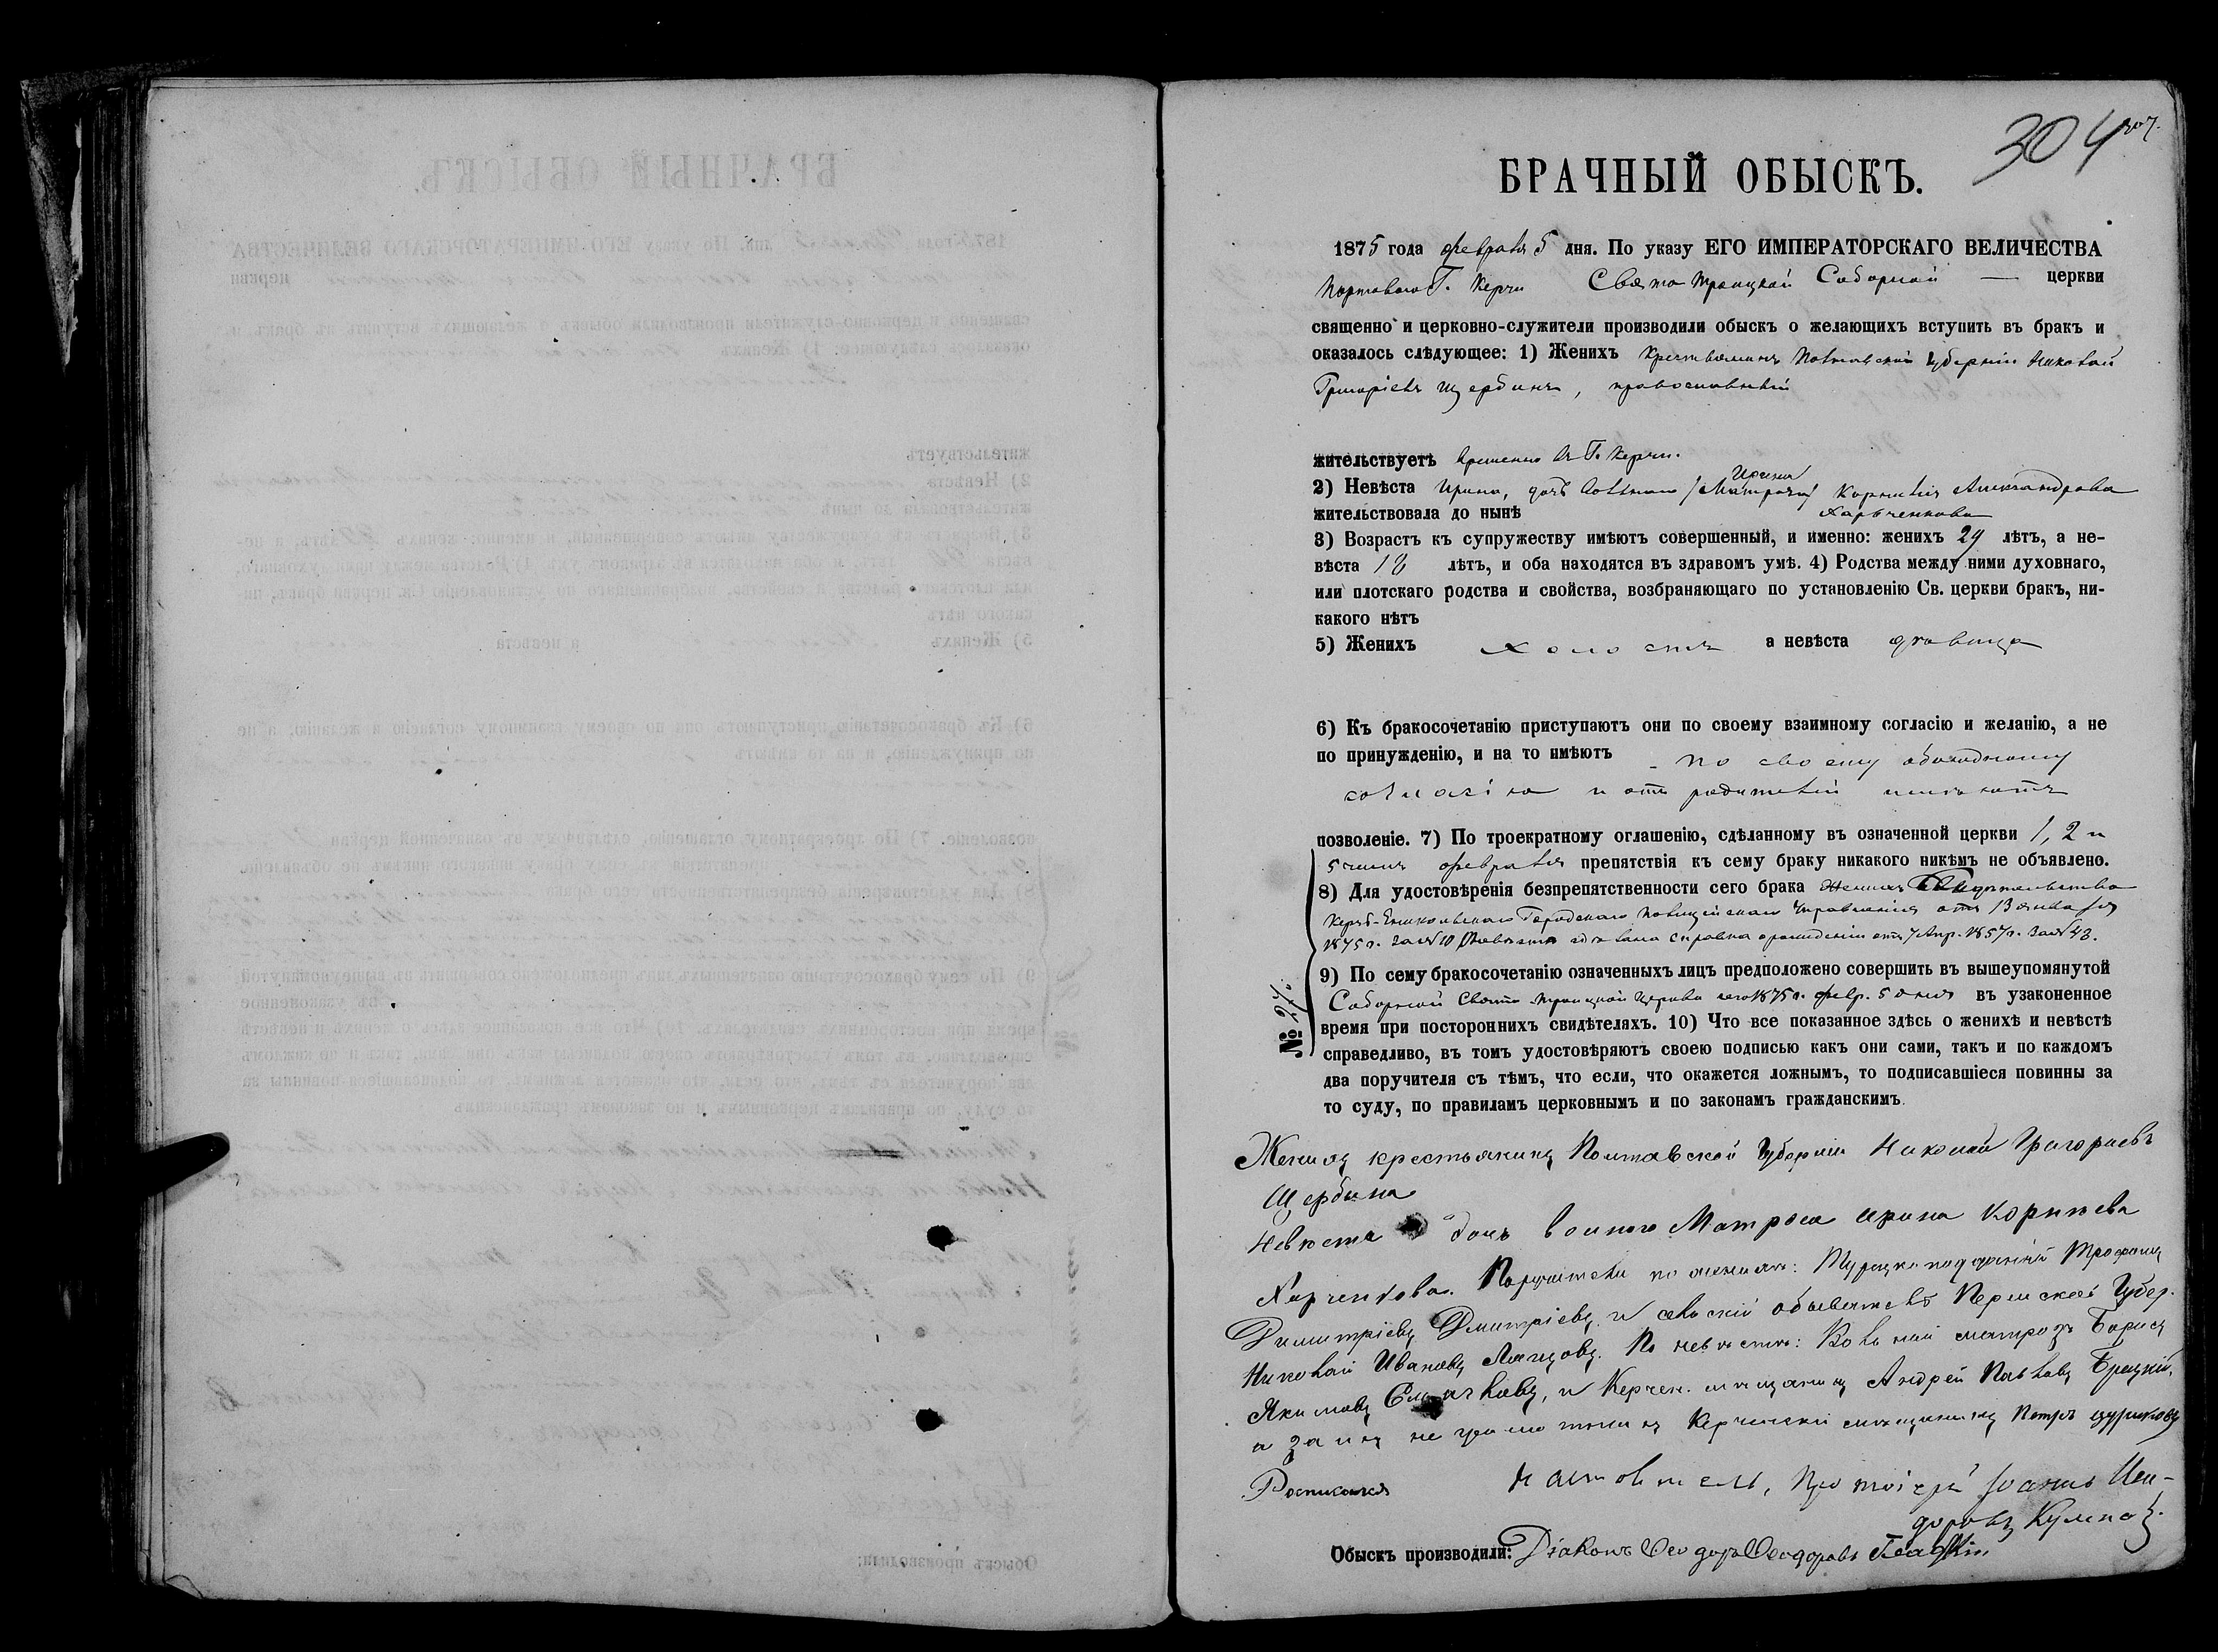 304
307.
БРАЧНЫЙ ОБЫСКЪ.
1875 года февраля 5 дня. По указу ЕГО ИМПЕРАТОРСКАГО ВЕЛИЧЕСТВА
Портоваго Г. Керчи Свято Троицкой Соборной — церкви
священно и церковно-служители производили обыскъ о желающихъ вступить въ бракъ и
оказалось слѣдующее: 1) Женихъ Крестьянинъ Полтавской губерніи Николай
Григоріевъ Щербина, православный
жительствуетъ временно въ Г. Керчи.
2) Невѣста Ирина, дочь Матроса Ирина Корнилія Александрова
жительствовала до нынѣ Харьченкова
3) Возрастъ къ супружеству имѣютъ совершенный, и именно: женихъ 29 лѣтъ, а не-
вѣста 18 лѣтъ, и оба находятся въ здравомъ умѣ. 4) Родства между ними духовнаго,
или плотскаго родства и свойства, возбраняющаго по установленію Св. церкви бракъ, ни-
какого нѣтъ
5) Женихъ холостъ а невѣста дѣвица
6) Къ бракосочетанію приступаютъ они по своему взаимному согласію и желанію, а не
по принужденію, и на то имѣютъ по своему обоюдному
согласію и отъ родителей имѣютъ
позволеніе. 7) По троекратному оглашенію, сдѣланному въ означенной церкви 1, 2 и
5 числъ февраля препятствія къ сему браку никакого никѣмъ не объявлено.
8) Для удостовѣренія безпрепятственности сего брака Свидѣтельство
Керчь-Еникольскаго Городскаго Полицейскаго Управленія отъ 13 января
1875 г. за № 10 справка о рожденіи отъ 7 Апр. 1857 г. За № 43.
9) По сему бракосочетанію означенныхъ лицъ предположено совершить въ вышеупомянутой
Соборной Свято Троицкой Церкви сего 1875 г. февр. 5 дня въ узаконенное
время при постороннихъ свидѣтеляхъ. 10) Что все показанное здѣсь о женихѣ и невѣстѣ
справедливо, въ томъ удостовѣряютъ своею подписью какъ они сами, такъ и по каждомъ
два поручителя съ тѣмъ, что если, что окажется ложнымъ, то подписавшіеся повинны за
то суду, по правиламъ церковнымъ и по законамъ гражданскимъ.
№
Женихъ крестьянинъ Полтавской Губерніи Николай Григориевъ
Щербина
Невѣста дочь Матроса Ирина Корнѣева
Харченкова. Поручители по женихѣ: Турецко подданный Трофимъ
Димитріевъ Дмитріевъ и сельскій обыватель Губер.
Николай Ивановъ По невѣстѣ: Вольный матросъ Борисъ
Якимовъ и Керчен. мѣщанинъ Андрей Павловъ
а за ихъ не грамотныхъ Керченскій мѣщанинъ Петръ
Росписался Настоятель, Протоіерей Іоаннъ
Обыскъ производили: Діаконъ Ѳеодоръ Ѳеодоровъ Гладкій